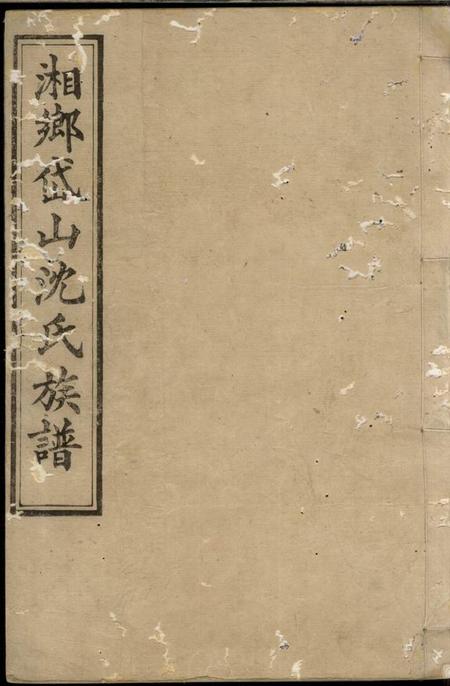 湘鄉岱山沈氏族譜